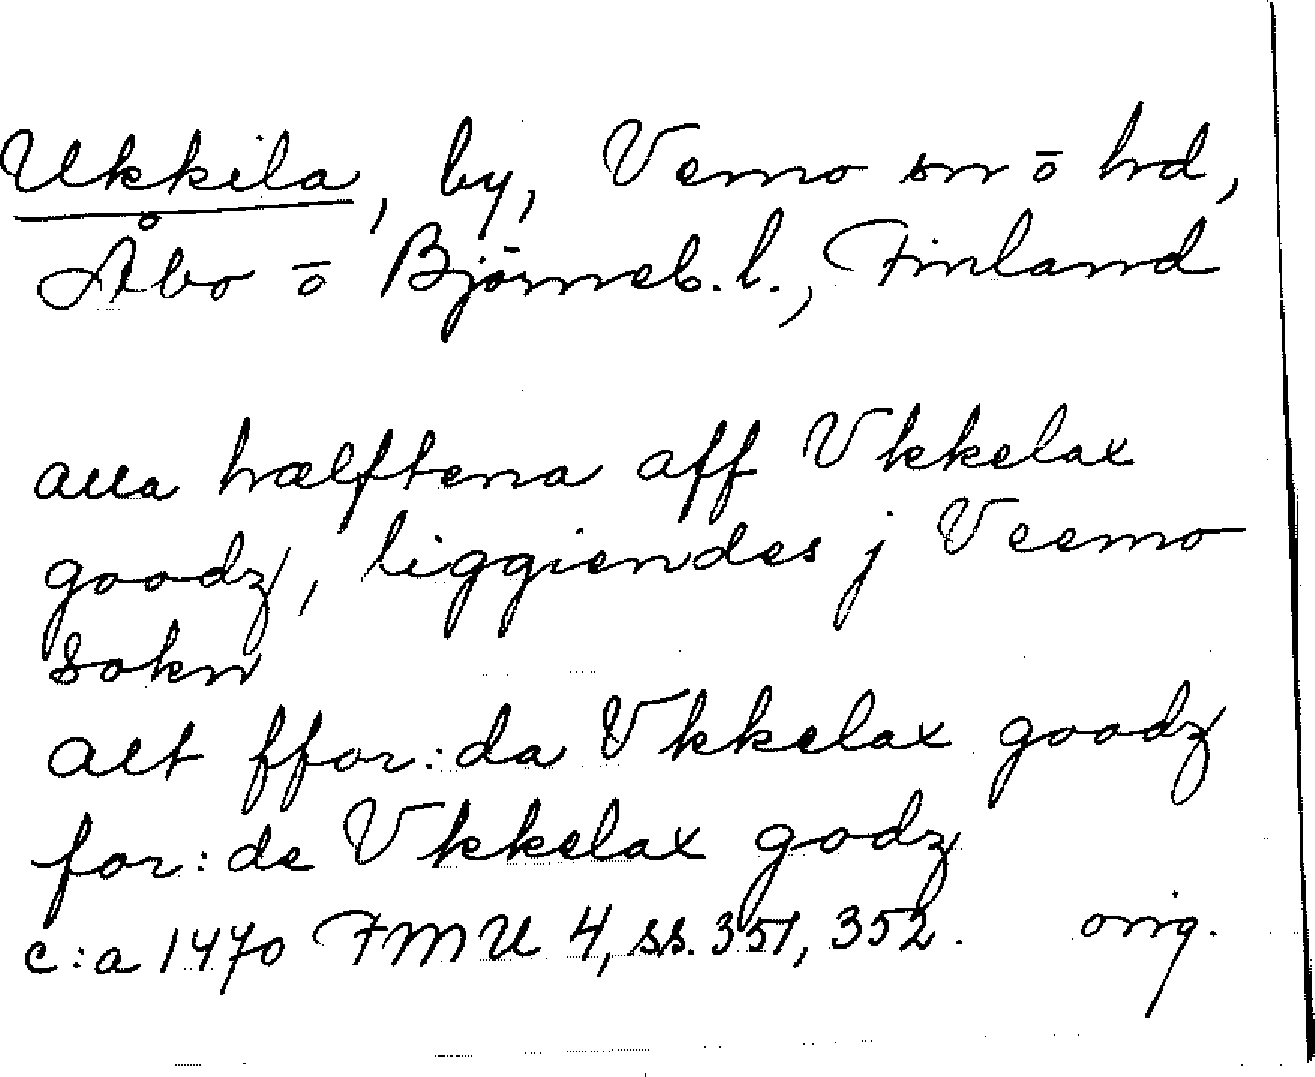 Ukkila, by, Vemo sn ō hd,
Åbo ō Björneb. l., Finland
alla hælftena aff Vkkelax
goodz, liggiendes j Veemo
sokn
alt ffor:da Vkkelax goodz
for:de Vkkelax godz
c:a 1470 FMU 4, ss. 351, 352. orig.